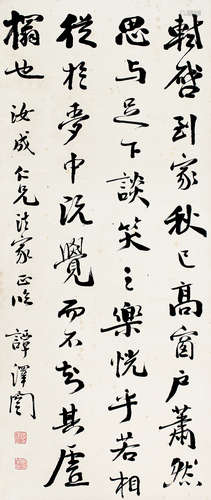 軾啓到家秋已高窗户蕭然
思与足下談笑之樂恍乎若相
從於夢中既覺而不知其虛
榻也 汝成仁兄法家正臨 譚澤闓